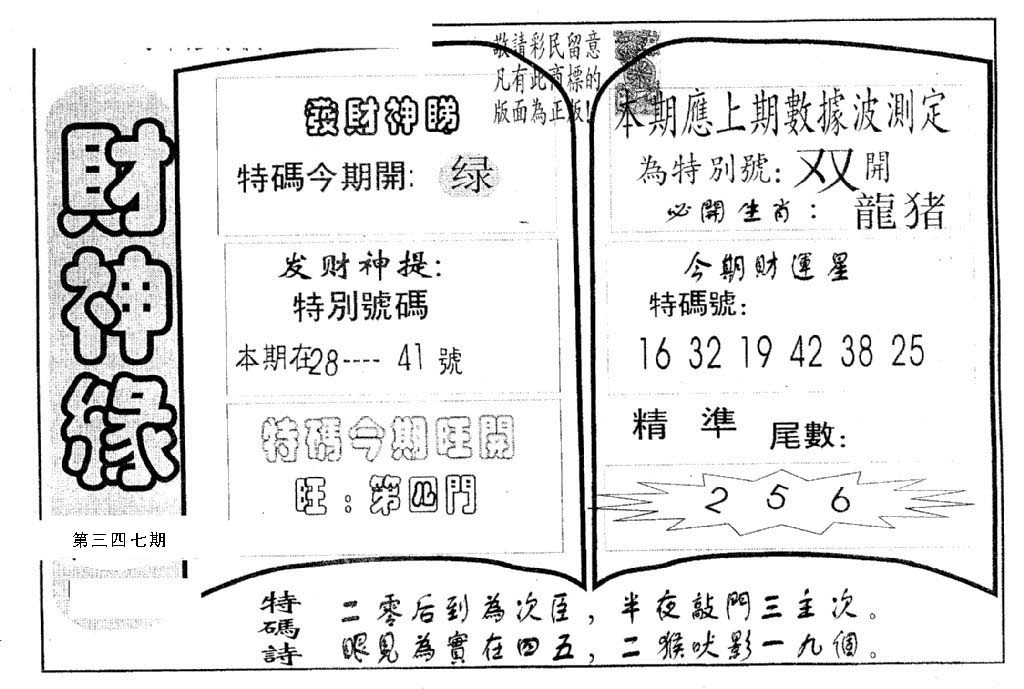 財神緣
第三四七期
敬請彩民留意
凡有此商標的
版面為正版!
發財神睇
特碼今期開: 绿
发财神提:
特別號碼
本期在28---- 41 號
特碼今期旺開
旺: 第四門
本期應上期數據波測定
為特別號: 双 開
必開生肖: 龍猪
今期財運星
特碼號:
16 32 19 42 38 25
精 準 尾數:
2 5 6
特碼詩
二零后到為次臣，半夜敲門三主次。
眼見為實在四五，二猴吠影一九個。